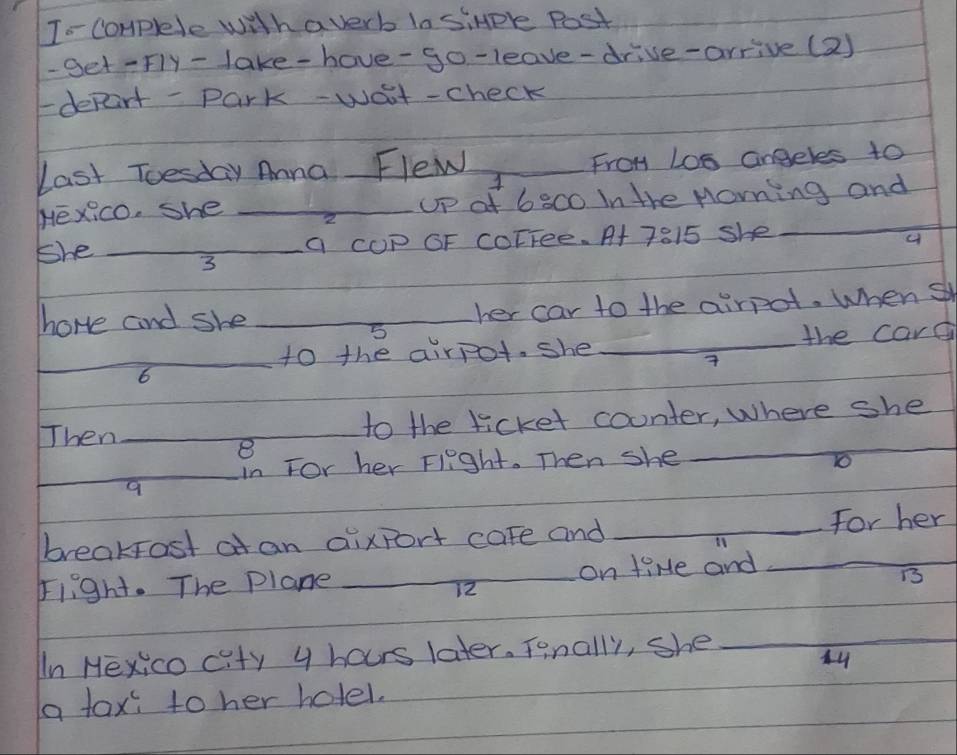 I- Complete with a verb in simple Past
- get - Fly - take - have - go - leave - drive - arrive (2)
- depart - Park - wait - check
Last Tuesday Anna Flew 1 From Los angeles to
Mexico. She 2 UP at 6:00 in the Morning and
She 3 a cup of coffee. At 7:15 she 4
home and she 5 her car to the airpot. When Sh
6 to the airpot. She 7 the car a
Then 8 to the ticket counter, where she
9 in For her Flight. Then she 10
breakfast at an airport cafe and 11 For her
Flight. The Plane 12 on time and 13
In Mexico city 4 hours later. Finally, she 14
a taxi to her hotel.